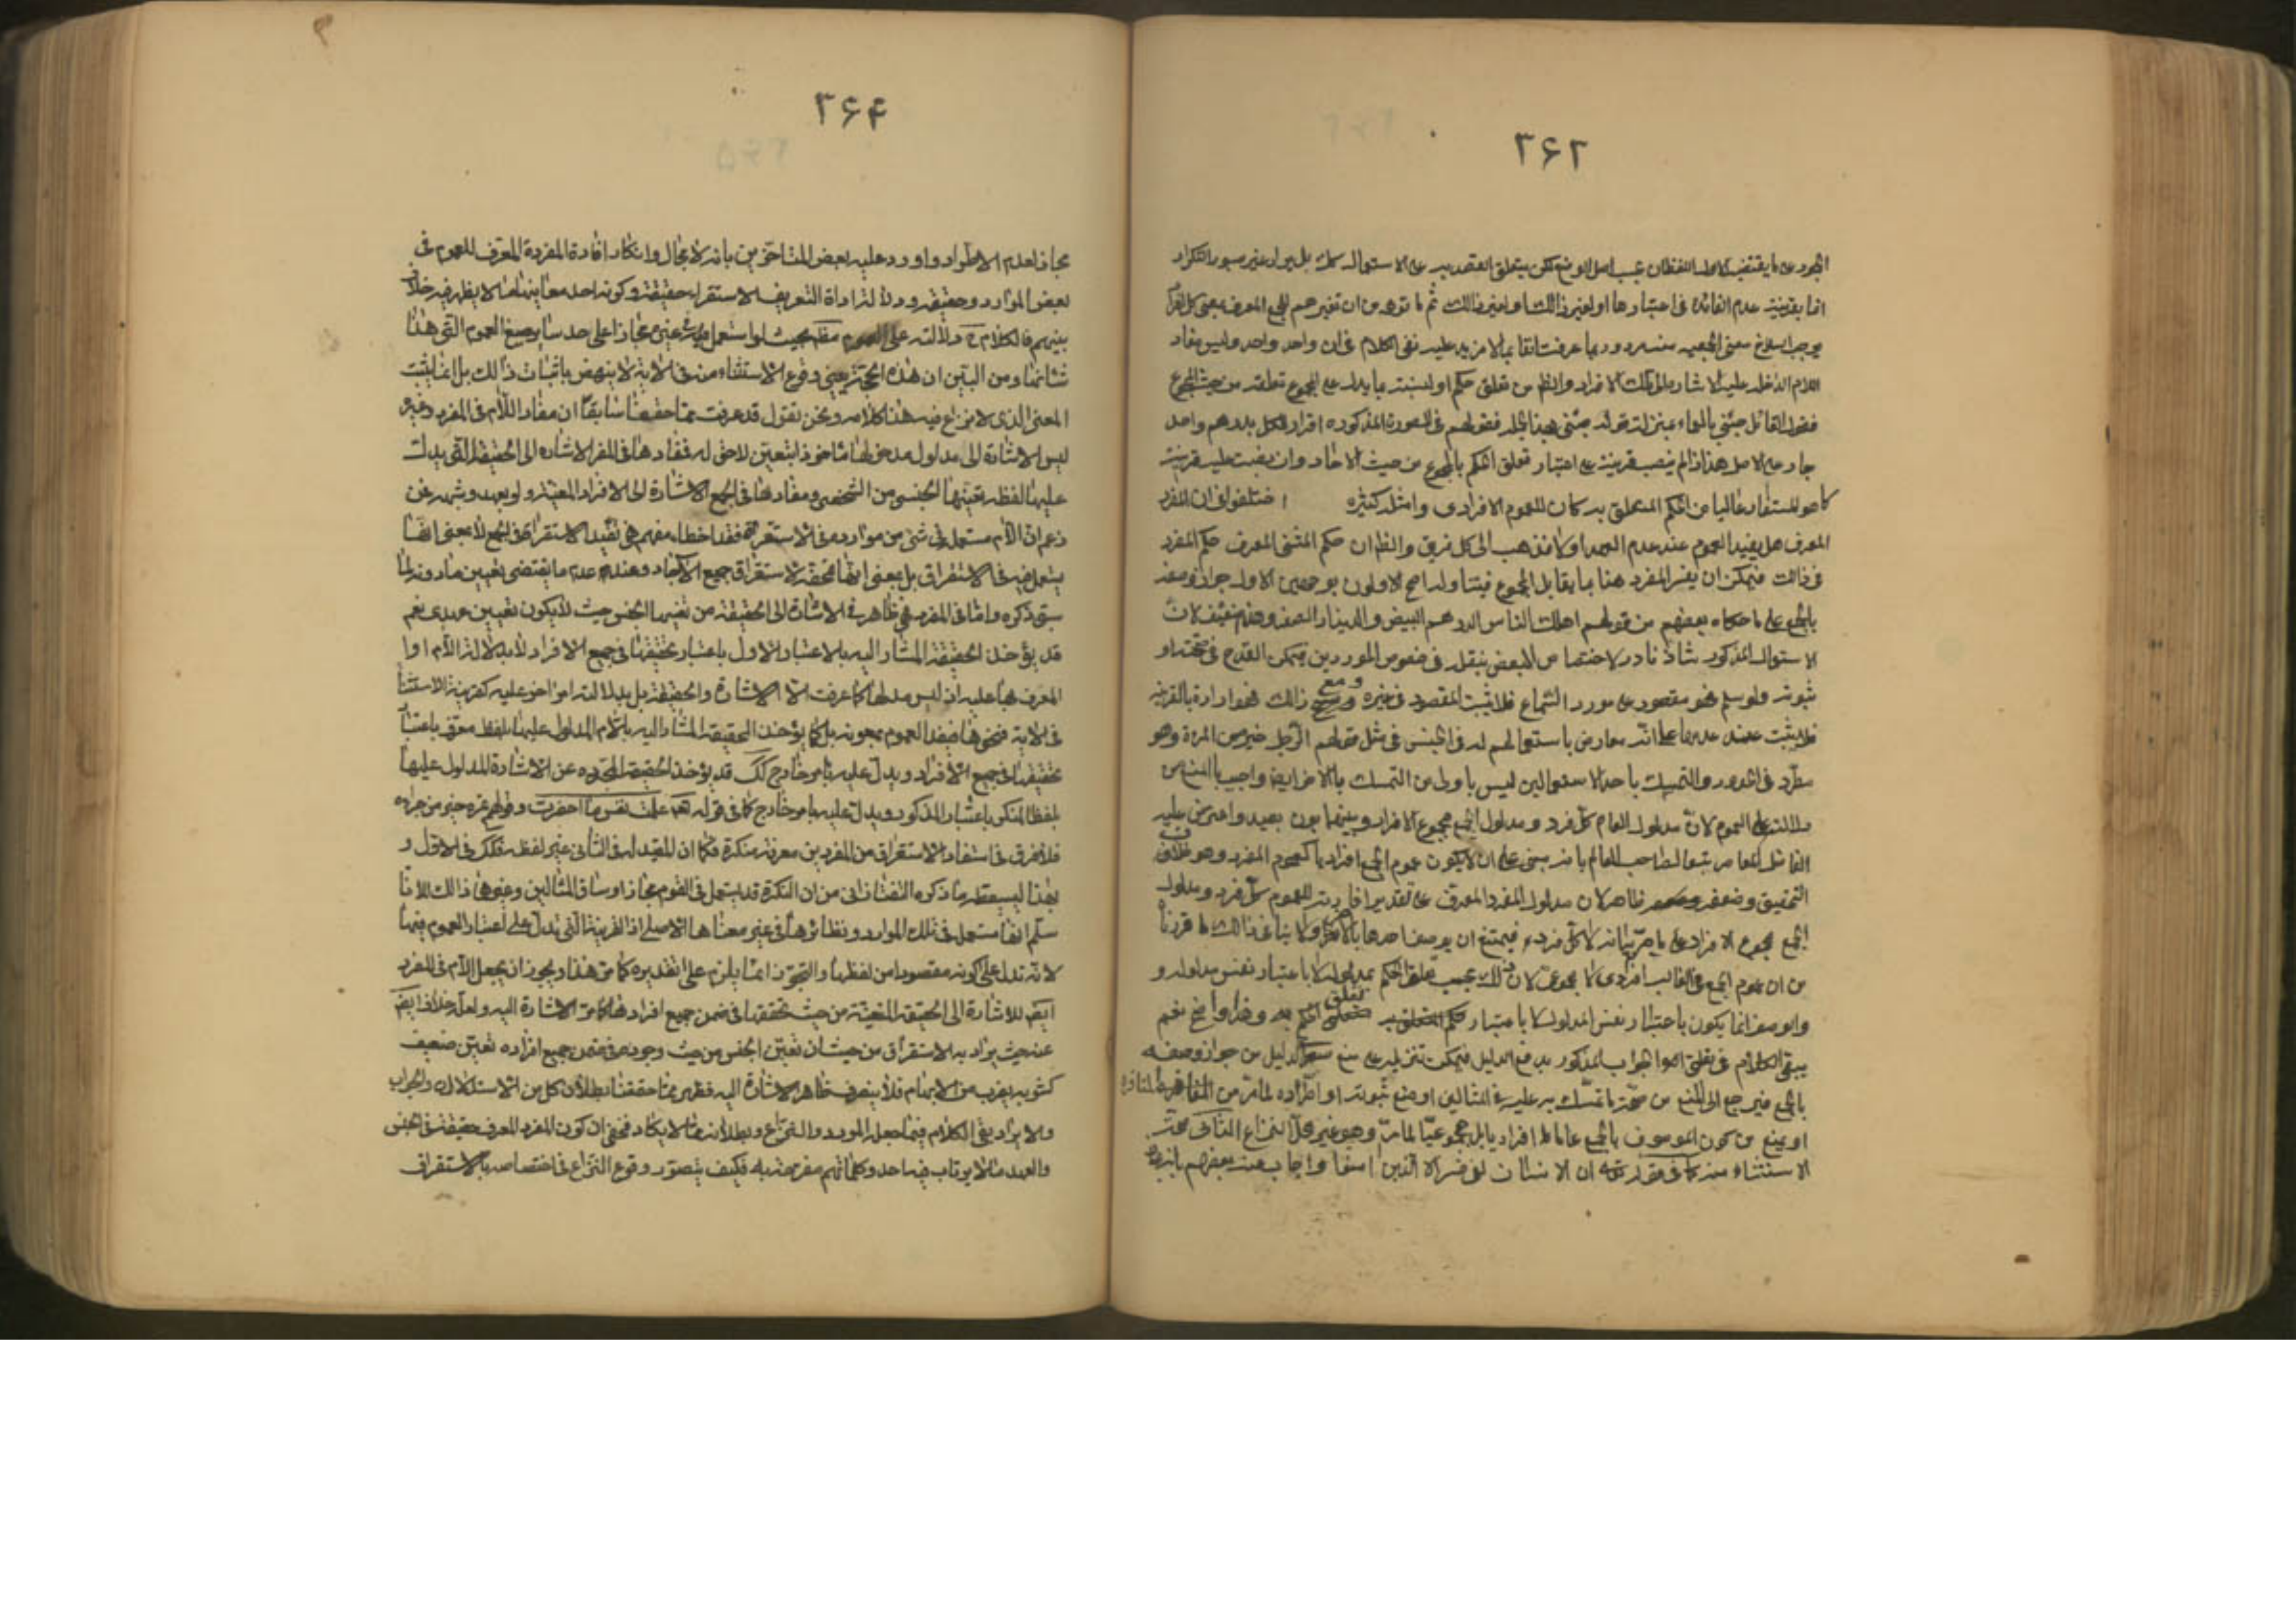 ۲۶۲
انما بقرينة عدم الفائدة فى اعتبارها او لغير ذالك او لغير ذالك ثم ما توهم من ان تفسيرهم للجمع المعرف بمعنى كل فرد
يوجب انسلاخ معنى الجمعيه منه مردود بما عرفت انفا بما لا مزيد عليه نعم الكلام فى ان واحد واحد وليس مفاد
اللام الداخله عليه الا الاشارة الى تلك الافراد والظ من تعلق حكم او نسبته بما يدل على المجموع تعلقه من حيث المجموع
فقول القائل جئنى بالماء بمنزلة قوله جئنى بهذا فقولهم فى الصورة المذكوره اقرار للكل بدرهم واحد
جار على الاصل هذا اذا لم ينصب قرينة على اعتبار تعلق الحكم بالجمع من حيث الاحاد وان نصبت عليه قرينة
كما هو المستفاد غالبا من الحكم المتعلق به كان للعموم الافرادى وامثلته كثيره اختلفوا فى ان المفرد
المعرف هل يفيد العموم عند عدم العهد او لا فذهب الى كل فريق والظ ان حكم المثنى المعرف حكم المفرد
فى ذالك فيمكن ان يفسر المفرد هنا بما يقابل المجموع فيتناوله احتج الاولون بوجهين الاول جواز وصفه
بالجمع على ما حكاه بعضهم من قولهم اهلك الناس الدرهم البيض والدينار الصفر وهذا ضعيف لان
الاستعمال المذكور شاذ نادر لاختصاص البعض بنقله فى خصوص الموردين فيمكن القدح فى صحته او
ثبوته ولو سلم فهو مقصور على مورد السماع فلا يثبت المقصود فى غيره ومع ذالك فهو ارادة بالقرينه
فلا يثبت عند عدمها على انه معارض باستعمالهم له فى الجنس فى مثل قولهم الرجل خير من المرءة وهو
مطرد فى الحدود والتمسك باحد الاستعمالين ليس باولى من التمسك بالاخر ايضا واجيب بالمنع من
دلالته على العموم لان مدلول العام كل فرد ومدلول الجمع مجموع الافراد وبينهما بون بعيد واعترض عليه
الفاضل المعاصر تبعا لصاحب المعالم بانه مبنى على ان لا يكون عموم الجمع افراديا كعموم المفرد وهو خلاف
التحقيق وضعفه ظاهر لان مدلول المفرد المعرف على تقدير افادته للعموم كل فرد ومدلول
الجمع مجموع الافراد على ما مر بيانه لا كل فرد فيمتنع ان يوصف احدهما بالاخر ولا ينافى ذالك ما قررنا
من ان عموم الجمع فى الغالب افرادى لا مجموعى لان ذلك بحسب تعلق الحكم بمدلوله لا باعتبار نفس مدلوله و
والوصف انما يكون باعتبار نفس المدلول لا باعتبار تعلق الحكم به وهذا واضح نعم
يبقى الكلام فى تطبيق الجواب المذكور بدفع الدليل فيمكن تنزيله على منع الدليل من جواز وصفه
بالجمع فيرجع الى المنع من صحة ما تمسك به عليه فى المثالين او منع ثبوته او اطراده لما مر من المنافرة
او يمنع من كون الموصوف بالجمع عاما افراديا بل مجموعيا لما مر وهو غير محل النزاع الثانى صحة
الاستثناء منه كما فى قوله تعه ان الانسان لفى خسر الا الذين امنوا واجاب عنه بعضهم بانه
۲۶۴
مجاز لعدم الاطراد واورد عليه بعض المتاخرين بانه لا مجال لانكار افادة المفرد المعرف للعموم فى
بعض الموارد وحقيقه ودلالة اداة التعريف الاستغراق حقيقة وكونه احد معانيها مما لا يظهر فيه خلاف
بينهم فالكلام ح دلالته على العموم مطلقا بحيث لو استعمل فى غيره كان مجازا على حد ساير صيغ العموم التى هذا
شانها ومن البين ان هذه الحجة يعنى وقوع الاستثناء منه فى الاية لا ينهض باثبات ذالك بل انما يثبت
المعنى الذى لا نزاع فيه هذا كلامه ونحن نقول قد عرفت مما حققنا سابقا ان مفاد اللام فى المفرد وغيره
ليس الا الاشارة الى مدلول مدخولها ماخوذا بتعين لاحق له فمفادها فى المفرد الاشارة الى الحقيقة التى يدل
عليها لفظه بتعينها الجنسى من الشخصى ومفادها فى الجمع الاشارة الى الافراد المعينة ولو بعهد وشبهه فمن
زعم ان اللام مستعمل فى شى من موارده فى الاستغراق فقد اخطاء نعم هى تفيد الاستغراق فى الجمع لا بمعنى انها
يستعمل فيه فى الاستغراق بل بمعنى انها تحقق الاستغراق جميع الاحاد وعند عدم ما يقتضى تعيين ما دونه لما
سبق ذكره واما فى المفرد فهى ظاهرة فى الاشارة الى الحقيقة من تعينها الجنسى حيث لا يكون تعيين عهدى نعم
قد يؤخذ الحقيقة المشار اليه بالاعتبار الاول باعتبار تحقيقها فى جميع الافراد لا بدلالة اللام او
المعرف بها عليه اذ ليس مدلولها كما عرفت الا الاشارة والحقيقة بل بدلالة امر اخر عليه كقرينة الاستثناء
فى الاية فنحوها ضيفد العموم بمعونته بل كما يؤخذ الحقيقة المشار اليه باللام المدلول عليها بلفظ معرف باعتبار
تحقيقها فى جميع الافراد ويدل عليه بامر خارج كك قد يؤخذ الحقيقة المجرده عن الاشارة المدلول عليها
بلفظ المنكر باعتبار المذكور ويدل عليه بامر خارج كما فى قوله تعه علمت نفس ما احضرت وقولهم تمرة خير من جراده
فلا فرق فى استفادة الاستغراق من المفرد بين معرفة ونكرة فكما ان المفيد له فى الثانى غير لفظه فكك فى الاول و
بهذا ليسقط ما ذكره التفتازانى من ان النكرة قد يستعمل فى العموم مجازا وساق المثالين ونحوها ذالك لانا
سلم انها مستعمل فى تلك الموارد ونظائرها فى غير معناها الاصلى اذ القرينة التى تدل على اعتبار العموم فيها
لا تدل على كونه مقصودا من لفظها والتجوز انما يلزم على تقديره كما مر هذا ويجوز ان يجعل اللام فى المفرد
ايضا للاشارة الى الحقيقة المعينة من حيث تحققها فى ضمن جميع افرادها كما مر الاشارة اليه ولعله خلاف
عند حيث يراد به الاستغراق من حيث ان تعين الجنس من حيث وجوده فى ضمن جميع افراده تعين ضعيف
كشوبه بضرب من الابهام فلا ينصرف ظاهر الاشارة اليه فظهر مما حققنا بطلان كل من الاستدلال والجواب
والايراد بقى الكلام فيما جعل المورد والنزاع وبطلانه مما لا يكاد يخفى ان كون المفرد المعرف حقيقة فى الجنس
والعهد مما لا يرتاب فيه احد وكلماتهم مفرعه به فكيف يتصور وقوع النزاع فى اختصاصه بالاستغراق